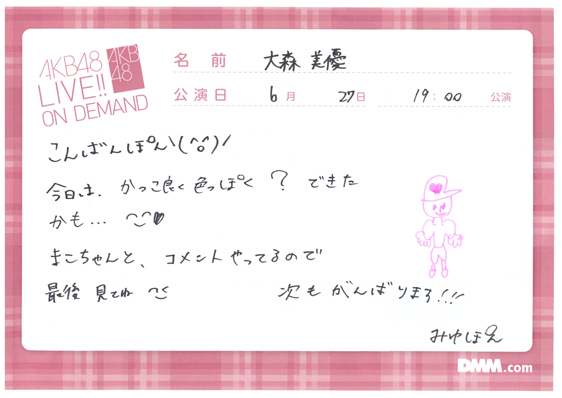 AKB48
LIVE!!
ON DEMAND
AKB
48
名前 大森 美優
公演日 6月 27日 19:00 公演
こんばんぽん\(^o^)/
今日は、かっこ良く色っぽく？できた
かも…
まこちゃんと、コメントやってるので
最後 見てね
次も がんばりまる!!!
みゆぽん
DMM.com